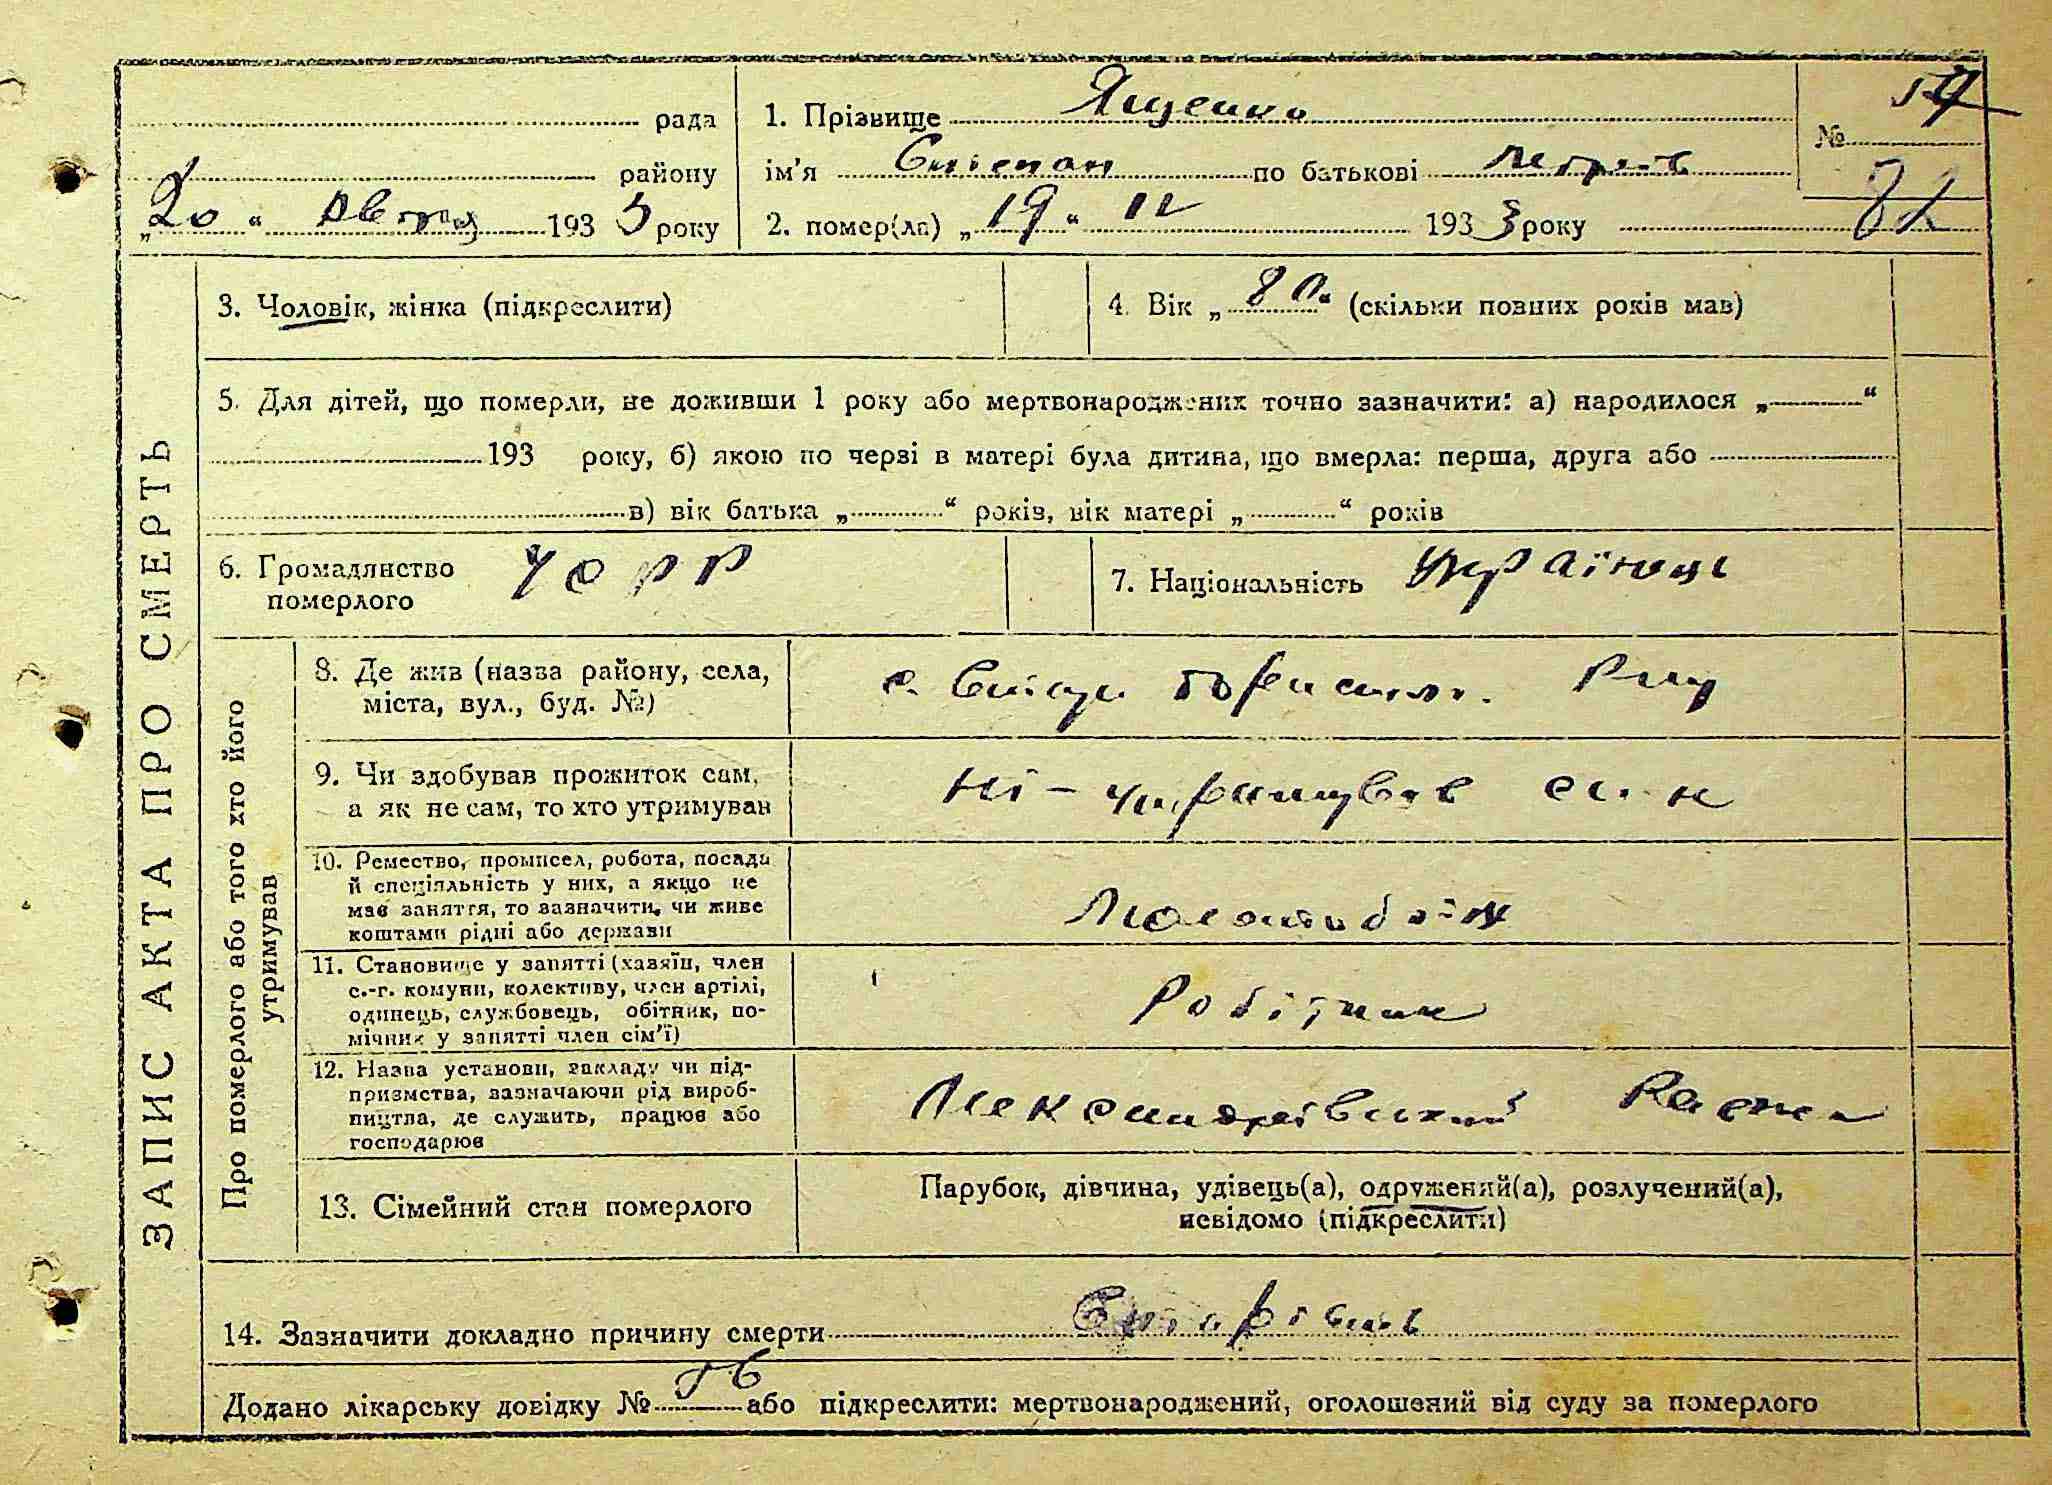 рада
району
„20“ Август 1933 року
1. Прізвище Ященко
ім'я Степан по батькові Петров
2. помер(ла) „19“ IV 1933 року
№ 54
82
ЗАПИС АКТА ПРО СМЕРТЬ
3. Чоловік, жінка (підкреслити)
4. Вік „80“ (скільки повних років мав)
5. Для дітей, що померли, не доживши 1 року або мертвонароджених точно зазначити: а) народилося „ “
193 року, б) якою по черзі в матері була дитина, що вмерла: перша, друга або
в) вік батька „ “ років, вік матері „ “ років
6. Громадянство
померлого
УСРР
7. Національність Українець
Про померлого або того хто його
утримував
8. Де жив (назва району, села,
міста, вул., буд. №)
с.
9. Чи здобував прожиток сам,
а як не сам, то хто утримував
Ні - утримував син
10. Ремество, промисел, робота, посада
й спеціяльність у них, а якщо не
має заняття, то зазначити, чи живе
коштами рідні або держави
Молотобоїн
11. Становище у занятті (хазяїн, член
с.-г. комуни, колективу, член артілі,
одинець, службовець, обітник, по-
мічник у занятті член сім'ї)
Робітник
12. Назва установи, закладу чи під-
приємства, зазначаючи рід вироб-
ництва, де служить, працює або
господарює
13. Сімейний стан померлого
Парубок, дівчина, удівець(а), одружений(а), розлучений(а),
невідомо (підкреслити)
14. Зазначити докладно причину смерти
Додано лікарську довідку № або підкреслити: мертвонароджений, оголошений від суду за померлого